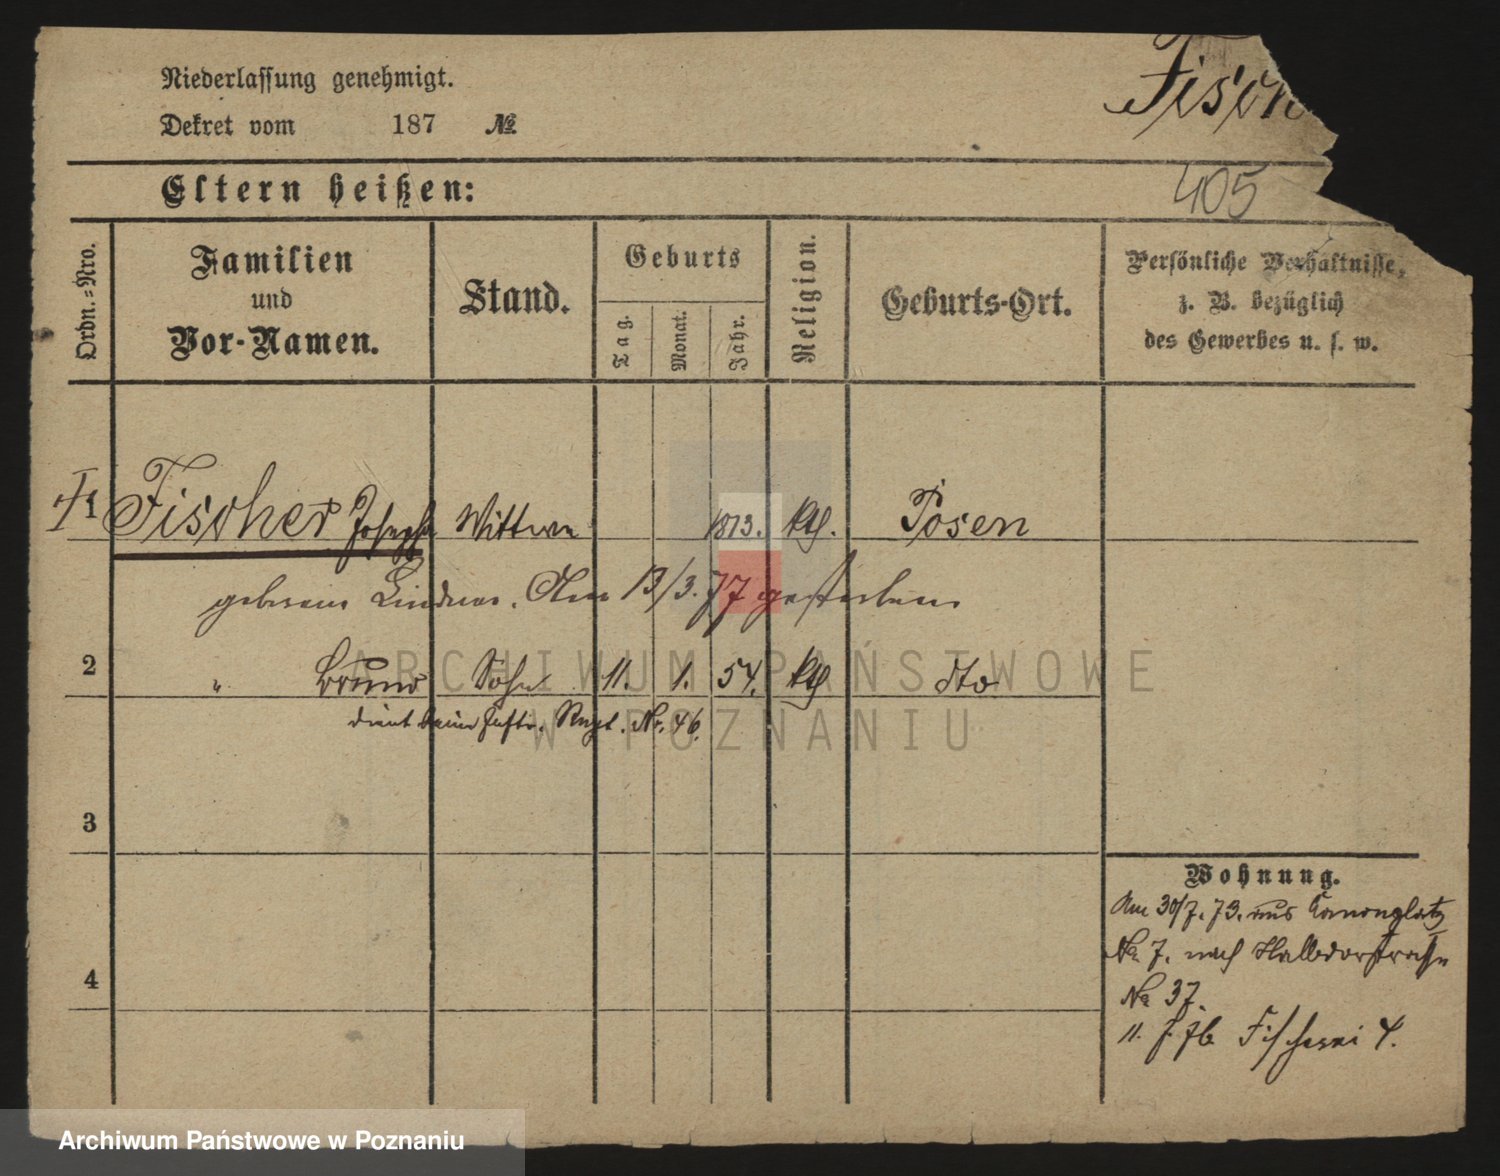 Niederlassung genehmigt.
Dekret vom 187 №
Fisch
Eltern heißen:
405
Ordn.-Nro.
Familien
und
Vor-Namen.
Stand.
Geburts
Tag.
Monat.
Jahr.
Religion.
Geburts-Ort.
Persönliche Verhältnisse,
z. B. bezüglich
des Gewerbes u. s. w.
1 Fischer Josepha Wittwe 1813. kth. Posen
geborene Lindner. Am 13/3. 77 gestorben
2 " Bruno Sohn 11. 1. 54. kth. dto
dient beim Inftr. Regt. Nr. 46.
3
4
Wohnung.
Am 30/7. 73. aus Kanonplatz
No 7. nach Halbdorfstraße
No 37.
11. 7. 76 Fischerei 4.
ARCHIWUM PAŃSTWOWE
W POZNANIU
Archiwum Państwowe w Poznaniu